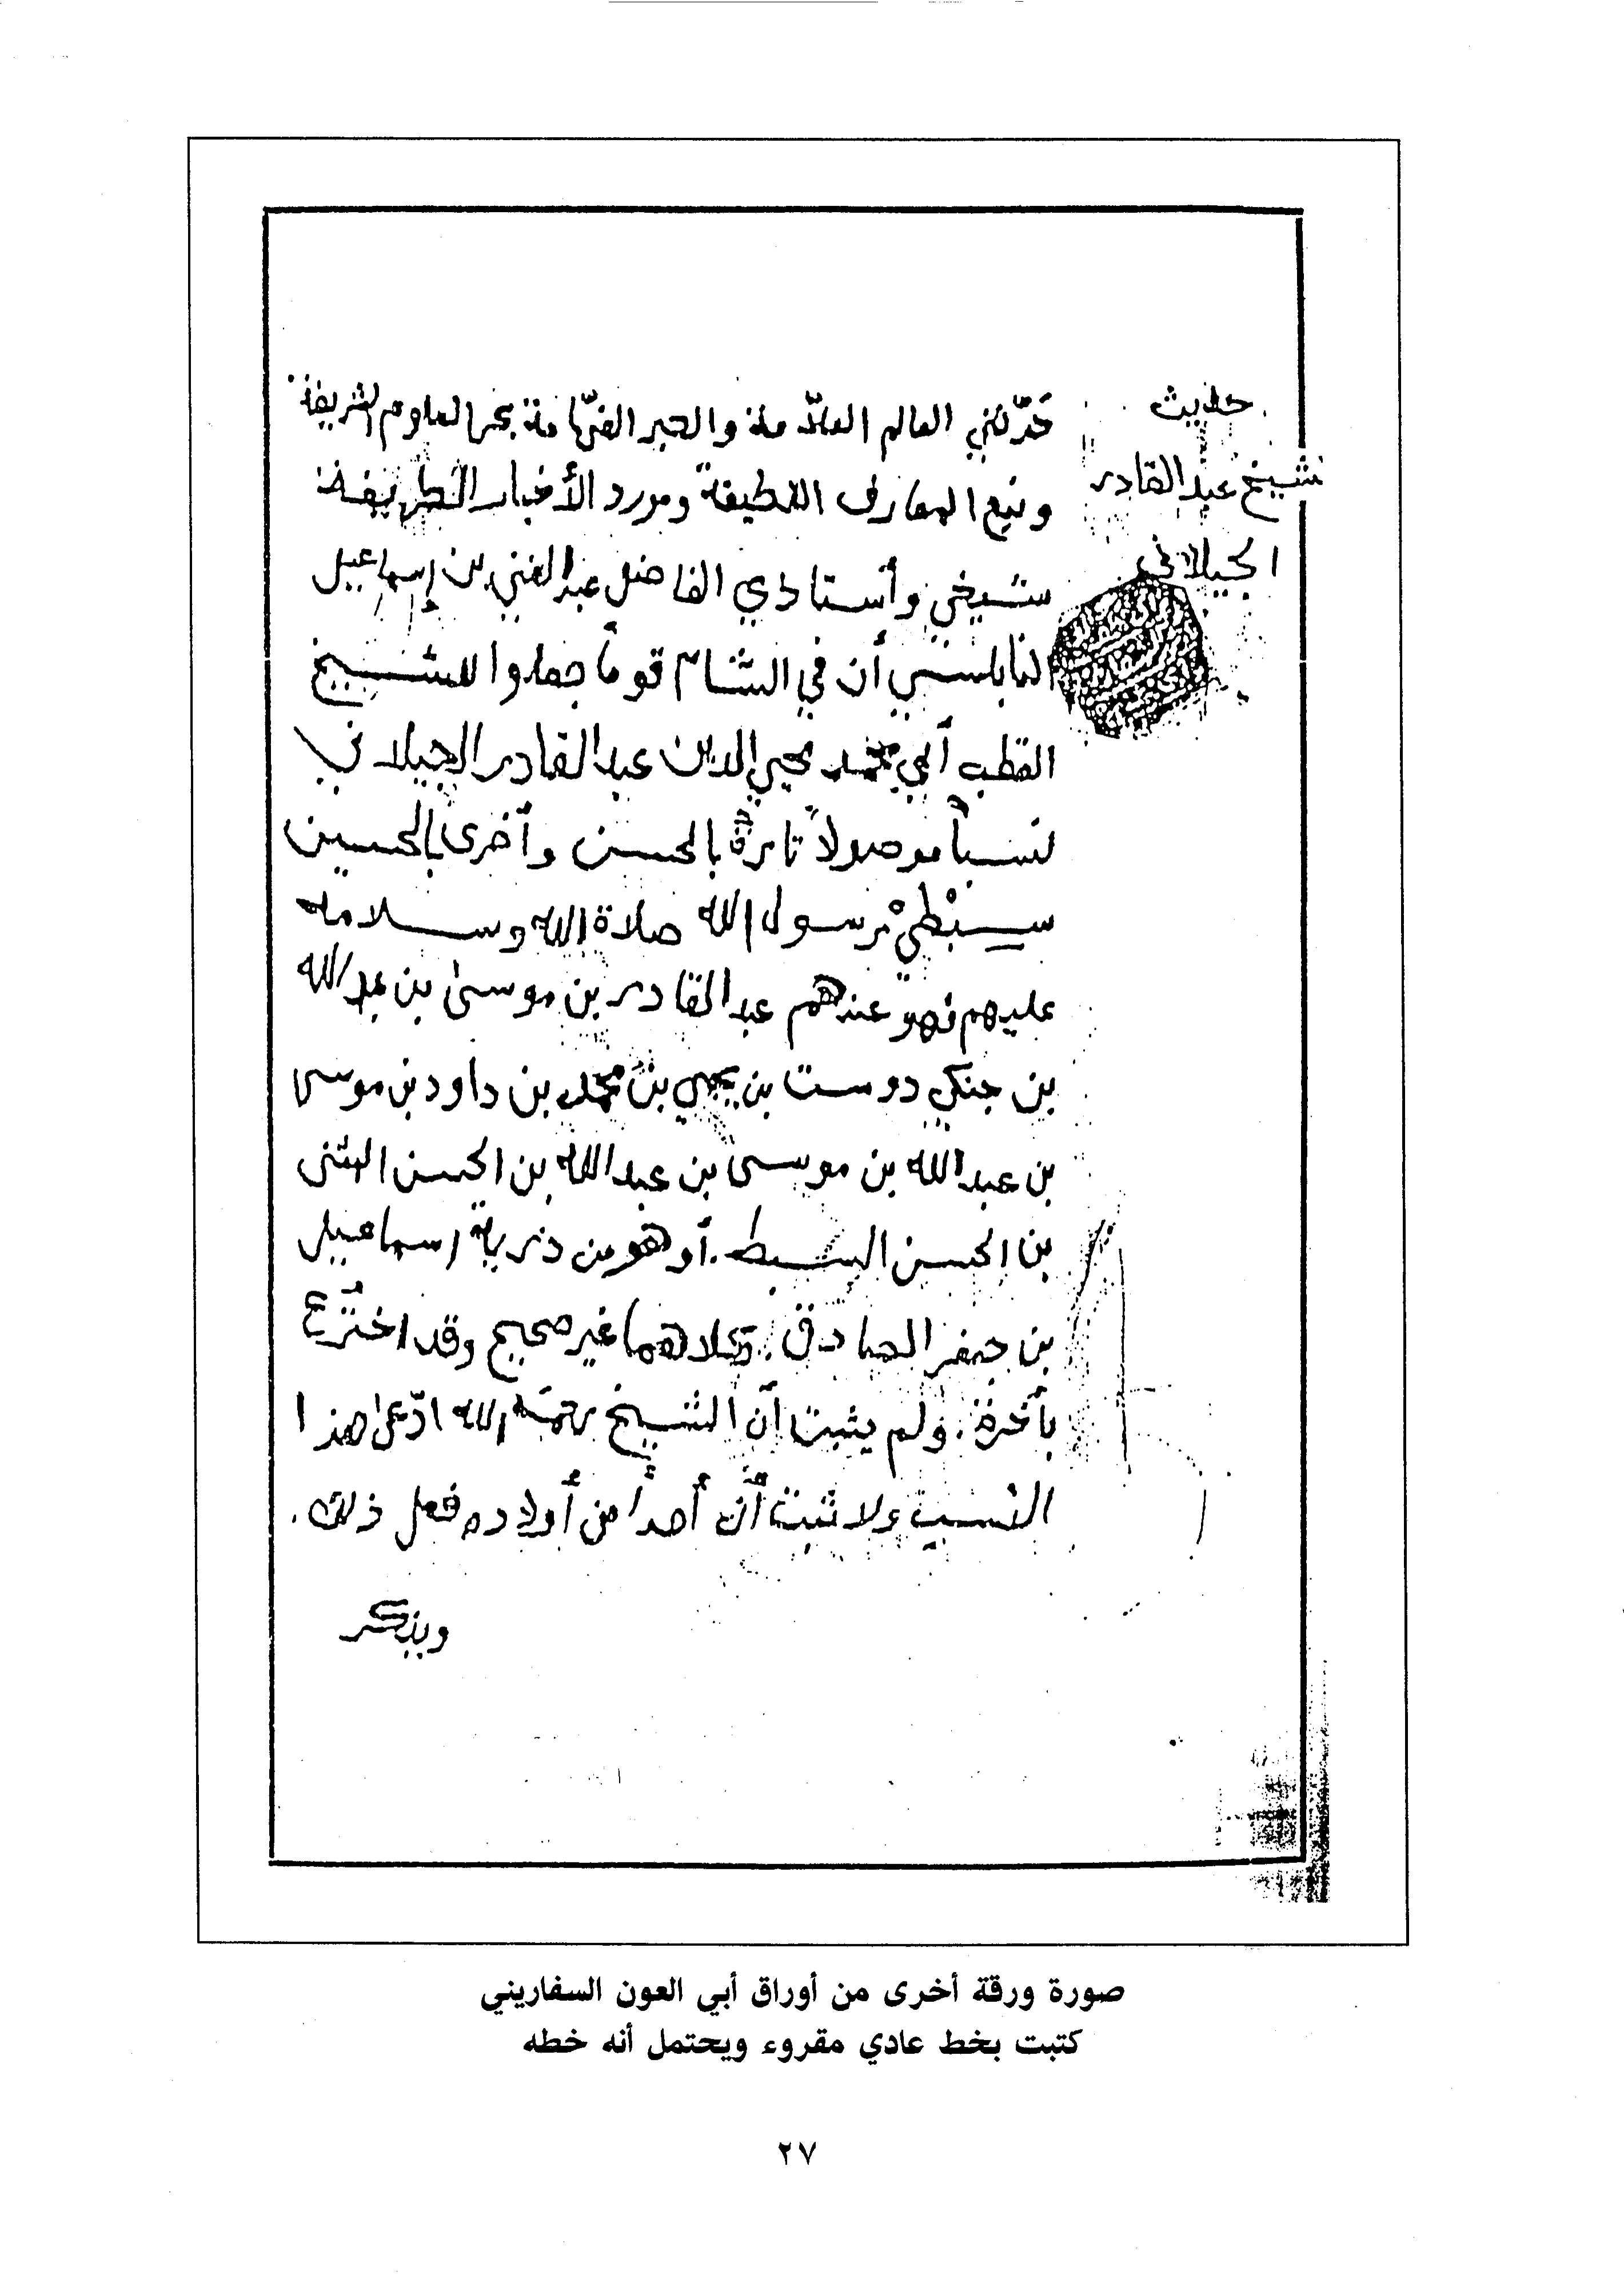 حديث
شيخ عبد القادر
الجيلاني
حَدَّثني العالم العلّامة والحبر الفهّامة بحر العلوم الشريفة
ونبع المعارف اللطيفة ومورد الأخبار الطريفة
شيخي وأستاذي الفاضل عبد الغني بن إسماعيل
النابلسي أن في الشام قوماً جعلوا للشيخ
القطب أبي محمد محيي الدين عبد القادر الجيلاني
نسباً موصولاً تارةً بالحسن وأخرى بالحسين
سبْطيْ رسول الله صلاة الله وسلامه
عليهم فهو عندهم عبد القادر بن موسى بن عبد الله
بن جنكي دوست بن يحيى بن محمد بن داود بن موسى
بن عبد الله بن موسى بن عبد الله بن الحسن المثنى
بن الحسن السبط. أو هو من ذرية إسماعيل
بن جعفر الصادق. وكلاهما غير صحيح وقد اختُرع
بأخرة. ولم يثبت أن الشيخ رحمه الله ادّعى هذا
النسب ولا ثبت أنّ أحداً من أولاده فعل ذلك.
ويذكر
صورة ورقة أخرى من أوراق أبي العون السفاريني
كتبت بخط عادي مقروء ويحتمل أنه خطه
٢٧